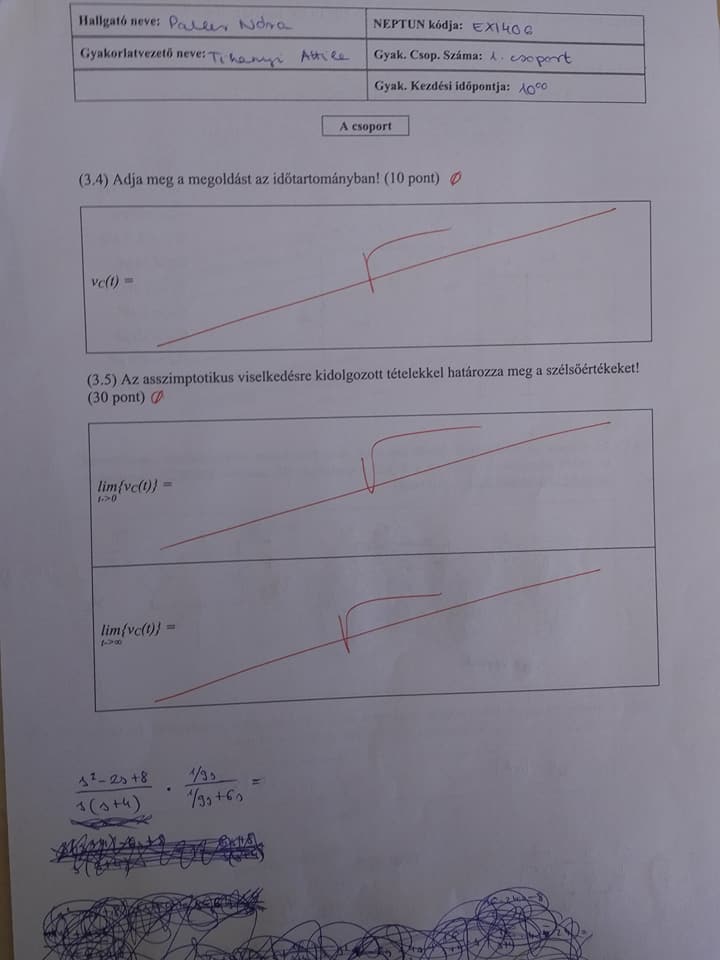 Hallgató neve: Paller Nóra
NEPTUN kódja: EXI40G
Gyakorlatvezető neve: Tihanyi Attila
Gyak. Csop. Száma: 1. csoport
Gyak. Kezdési időpontja: 10⁰⁰
A csoport
(3.4) Adja meg a megoldást az időtartományban! (10 pont) ∅
vC(t) =
(3.5) Az asszimptotikus viselkedésre kidolgozott tételekkel határozza meg a szélsőértékeket!
(30 pont) ∅
lim{vC(t)} =
t->0
lim{vC(t)} =
t->∞
s²-2s+8 1/9s
· =
s(s+4) 1/9s+6s